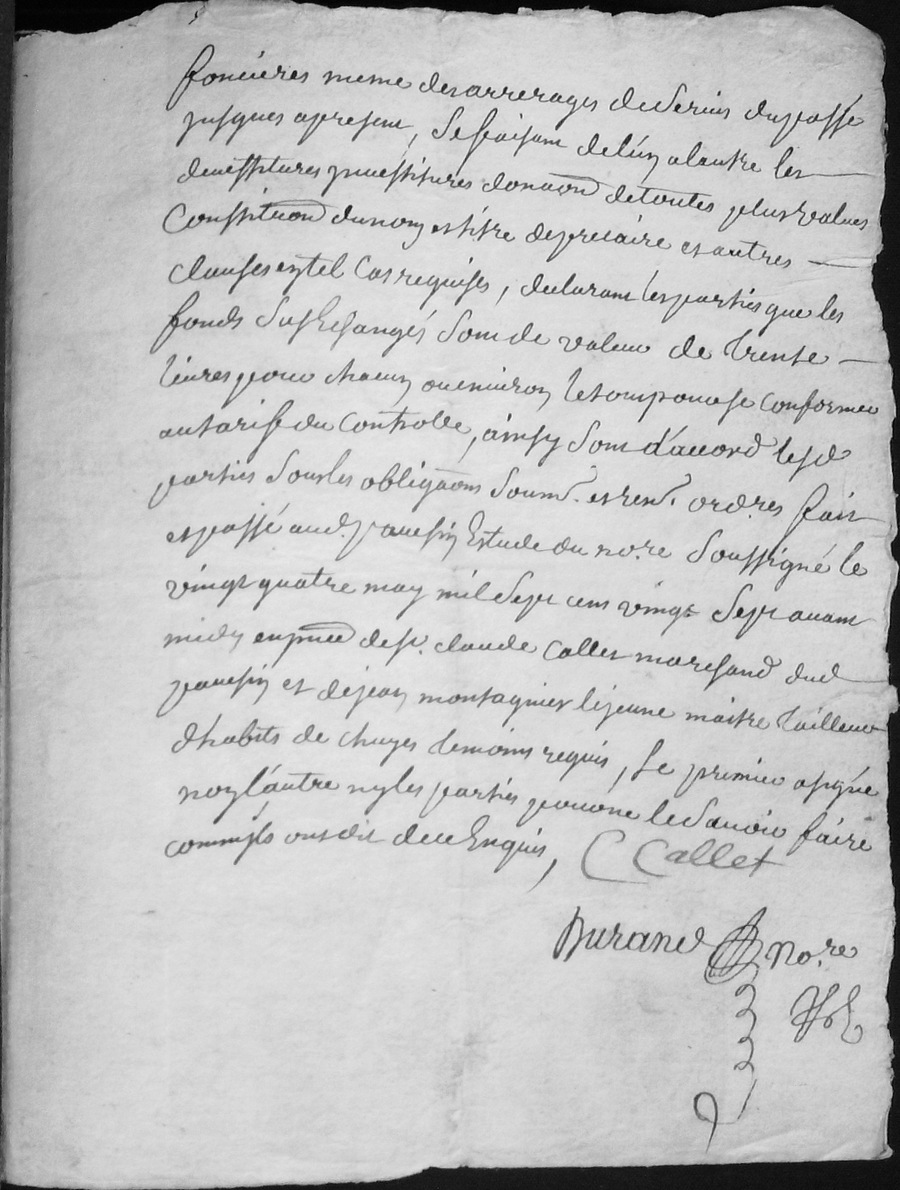 foncieres meme des arrerages de servis du passé
jusques a present, se faisant de l'un a l'autre les
devestitures jnvestitures donaõn de toutes plus values
Constituõn du nom et titre de precaire et autres
clauses en tel Cas requises, declarant les parties que les
fonds Sus Eschangés Sont de valeur de trente
livres pour chacun ou environ le tout pour se conformer
au tarif du Controlle, ainsy Sont d'accord lesd
parties Sous les obligaõns Soum.^s et ren.^s ord.res fait
et passé aud. pavesin Estude du no.re Soussigné le
vingt quatre may mil Sept cent vingt Sept avant
midy en pñce de s.^r claude Callet marchand dud
pavesin et de jean montagnier le jeune maitre tailleur
d'habits de chuyes temoins requis, le premier a signé
non l'autre ny les parties pour ne le Savoir faire
comm'ils ont dit de ce Enquis, C Callet
Durand No.re